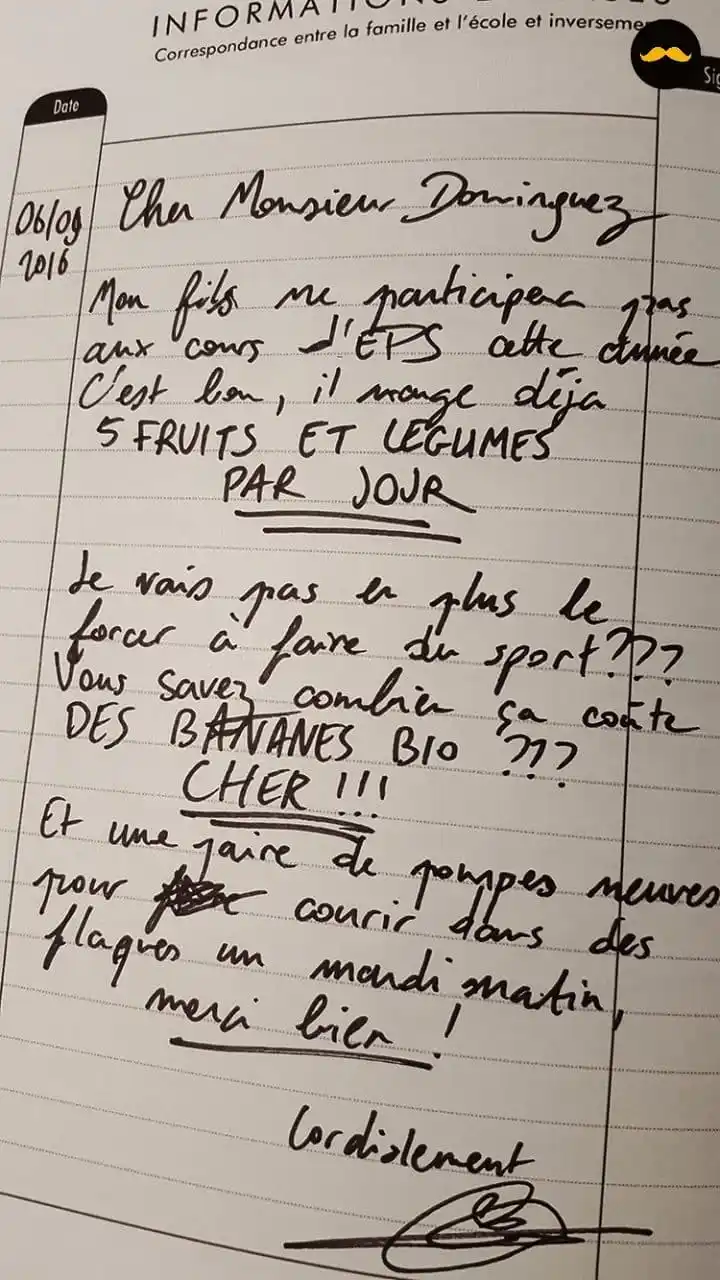 INFORMATIONS
Correspondance entre la famille et l'école et inverseme
Sig
Date
06/09
2016
Cher Monsieur Dominguez
Mon fils ne participera pas
aux cours d'EPS cette année
C'est bon, il mange déja
5 FRUITS ET LÉGUMES
PAR JOUR
Je vais pas en plus le
forcer à faire du sport???
Vous savez combien ça coûte
DES BANANES BIO ???
CHER !!!
Et une paire de pompes neuves
pour courir dans des
flaques un mardi matin,
merci bien !
Cordialement